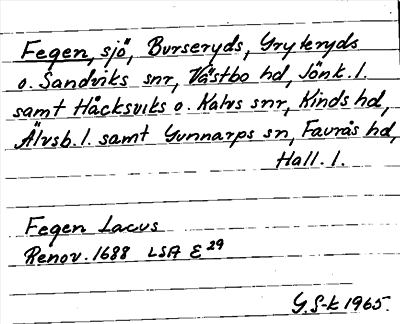 Fegen, sjö, Burseryds, Gryteryds
o. Sandviks snr, Västbo hd, Jönk. l.
samt Håcksviks o. Kalvs snr, Kinds hd,
Älvsb. l. samt Gunnarps sn, Faurås hd,
Hall. l.
Fegen Lacus
Renov. 1688 LSA E 29
G. S-k 1965.